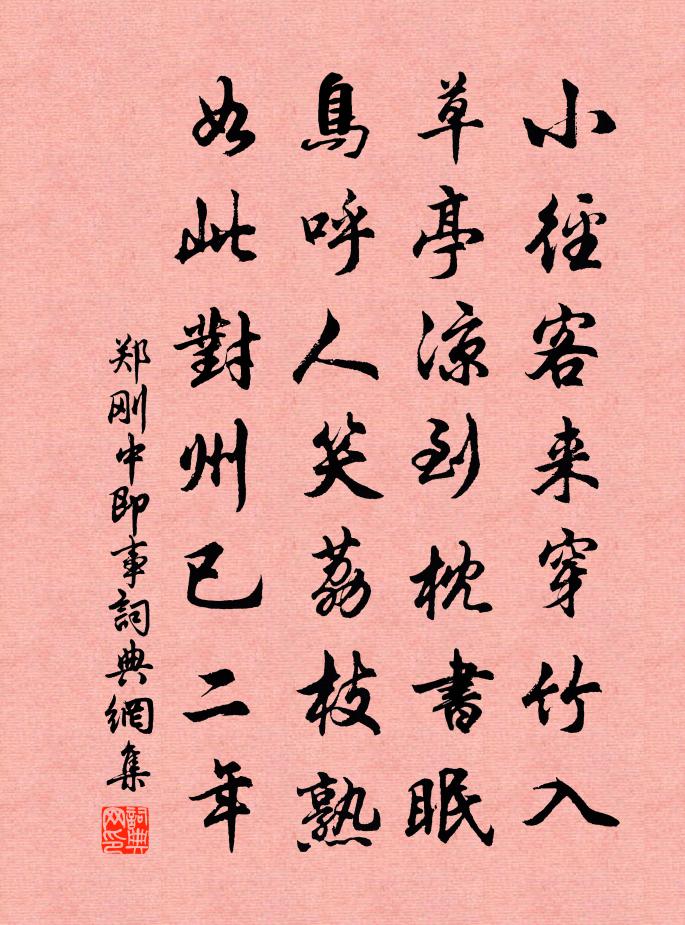 小徑客来穿竹入
草亭凉到枕書眠
鳥呼人笑荔枝熟
如此對州已二年
郑刚中即事詞典網集
詞典网印